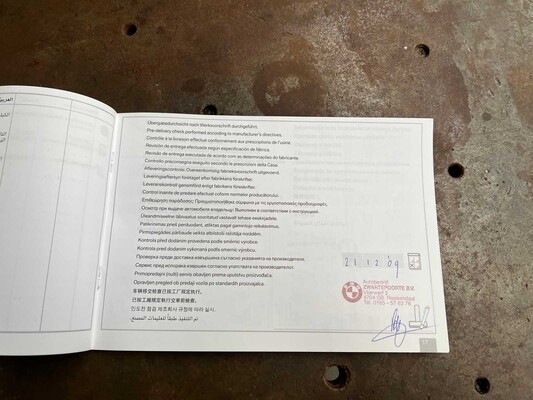 العربية
Übergabedurchsicht nach Werksvorschrift durchgeführt.
Pre-delivery check performed according to manufacturer's directives.
Contrôle à la livraison effectué conformément aux prescriptions de l'usine.
Revisión de entrega efectuada según especificación de fábrica.
Revisão de entrega executada de acordo com as determinações do fabricante.
Controllo preconsegna eseguito secondo le prescrizioni della Casa.
Afleveringscontrole: Overeenkomstig fabrieksvoorschrift uitgevoerd.
Leveringseftersyn foretaget efter fabrikkens forskrifter.
Leveranskontroll genomförd enligt fabrikens föreskrifter.
Control înainte de predare efectuat coform normelor producătorului.
Επιθεώρηση παράδοσης: Πραγματοποιήθηκε σύμφωνα με τις εργοστασιακές προδιαγραφές.
Осмотр при выдаче автомобиля владельцу: Выполнен в соответствии с инструкцией.
Üleandmiseelne ülevaatus sooritatud vastavalt tehase eeskirjadele.
Patikrinimas prieš perduodant, atliktas pagal gamintojo reikalavimus.
Pirmspiegādes pārbaude veikta atbilstoši ražotāja norādēm.
Kontrola před dodáním provedena podle směrnic výrobce.
Kontrola pred dodaním vykonaná podľa smerníc výrobcu.
Проверка преди доставка извършена съгласно указанията на производителя.
Сервис пред испорака извршен согласно упатствата на производителот.
Primopredajni (nulti) servis obavljen prema uputstvu proizvođača.
Opravljen pregled ob predaji vozila po standardih proizvajalca.
车辆移交检查已按工厂规定执行。
已按工廠規定執行交車前檢查。
인도전 점검 제조회사 규정에 따라 실시.
تم التنفيذ طبقاً لتعليمات المصنع.
21.12.09
Autobedrijf
ZWARTEPOORTE B.V.
Vijverwerf 2
4704 SB Roosendaal
Tel. 0165 - 57 63 76
17